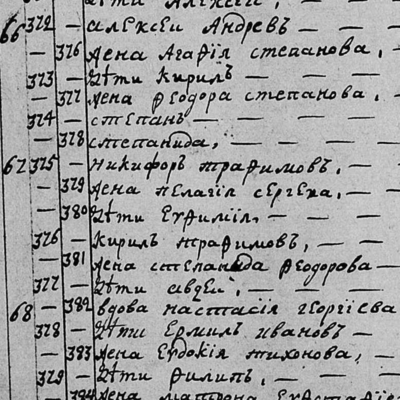 дѣти Алексеи,
66 372 — алеѯеи Андреевъ — — —
— 376 жена Агафія степанова, —
373 — дѣти Кирилъ — — —
— 377 жена Ѳеодора степанова, —
374 — степанъ — — —
— 378 степанида, — — —
67 375 — никифоръ трафимовъ, —
— 379 жена пелагія сергеева, —
— 380 дѣти Евфимія, — — —
376 — кирилъ трафимовъ, — —
— 381 жена степанида Ѳеодорова —
377 — дѣти авдеи, — — —
68 — 382 вдова настасія георгіева
378 — дѣти Ермилъ ивановъ —
— 383 жена Евдокія тихонова, —
379 — дѣти филипъ, — — —
— 384 жена матрона